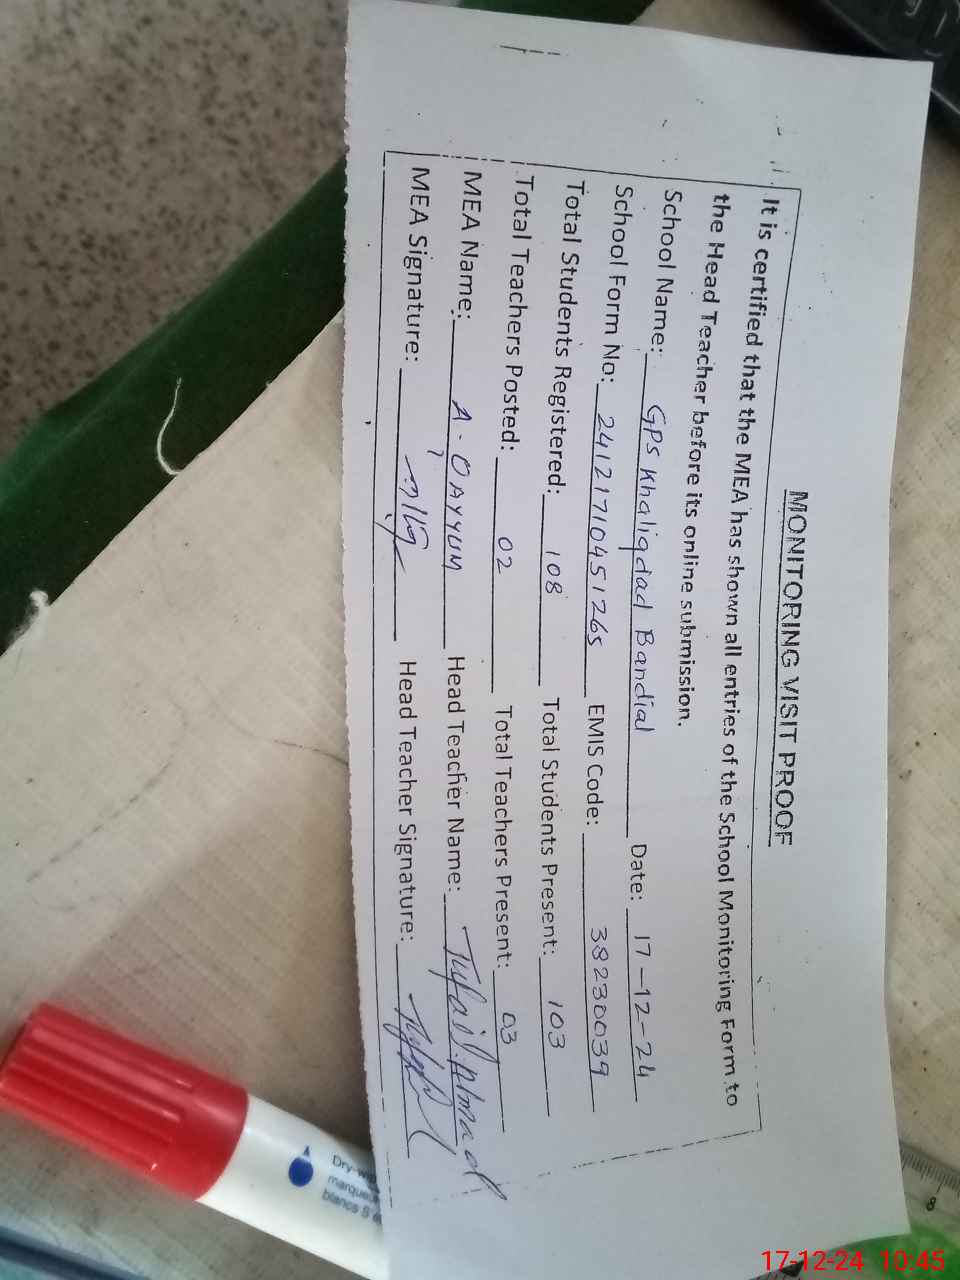 MONITORING VISIT PROOF
It is certified that the MEA has shown all entries of the School Monitoring Form to
the Head Teacher before its online submission.
School Name: GPS Khaliqdad Bandial Date: 17-12-24
School Form No: 2412171045 1265 EMIS Code: 38230039
Total Students Registered: 108 Total Students Present: 103
Total Teachers Posted: 02 Total Teachers Present: 03
MEA Name: A. QAYYUM Head Teacher Name: Tufail Ahmad
MEA Signature: Head Teacher Signature:
Dry-wip
marqueu
blancs
8
17-12-24 10:45